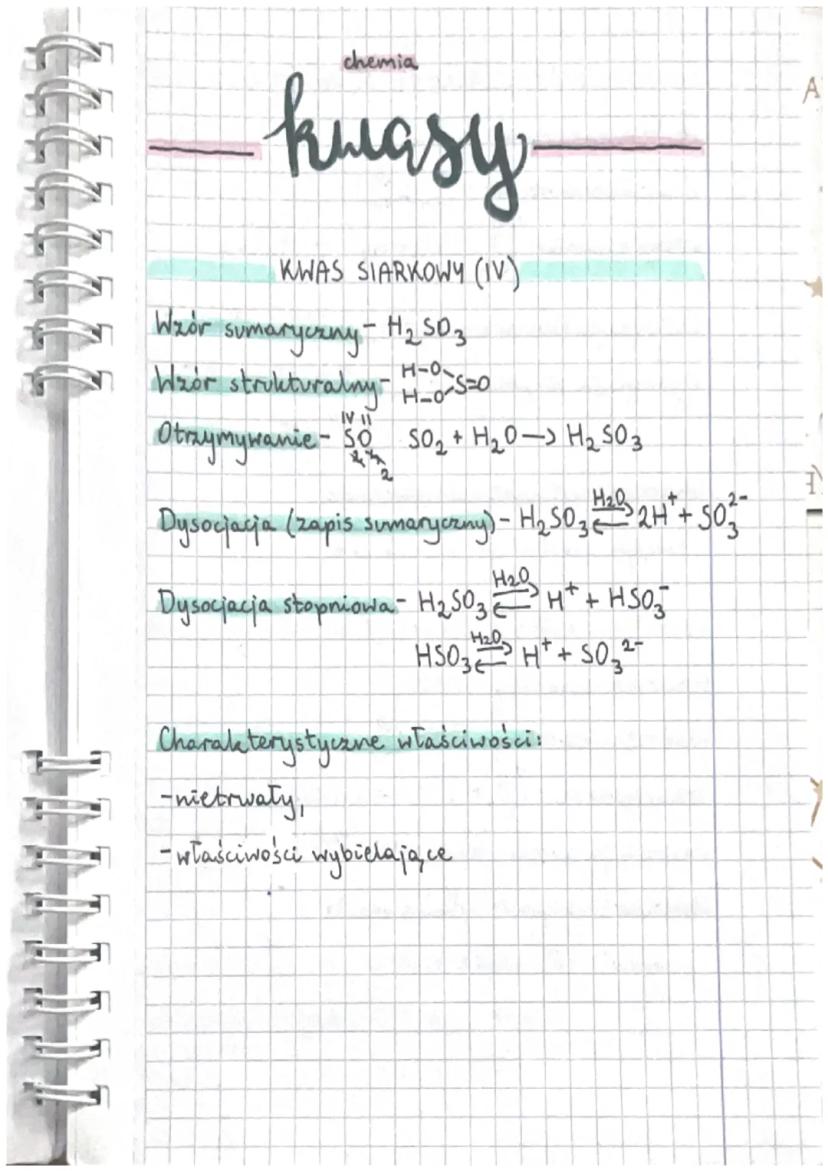 chemia
kwasy
KWAS SIARKOWY (IV)
Wzór sumaryczny - H₂SO₃
Wzór strukturalny - H-O
H-O S=O
IV II
Otrzymywanie - SO SO₂ + H₂O → H₂SO₃
2
Dysocjacja (zapis sumaryczny) - H₂SO₃ ⇄ H₂O 2H⁺ + SO₃²⁻
Dysocjacja stopniowa - H₂SO₃ ⇄ H₂O H⁺ + HSO₃⁻
HSO₃ ⇄ H₂O H⁺ + SO₃²⁻
Charakterystyczne właściwości:
- nietrwały,
- właściwości wybielające